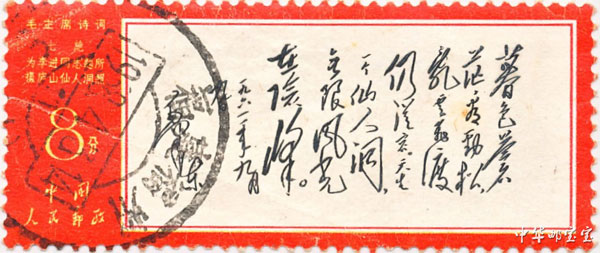 毛主席诗词
为李进同志题所
摄庐山仙人洞照
8分
中国
人民邮政
暮色苍
茫看劲松
乱云飞渡
仍从容天生
一个仙人洞
无限风光
在险峰。
一九六一年九月
毛泽东